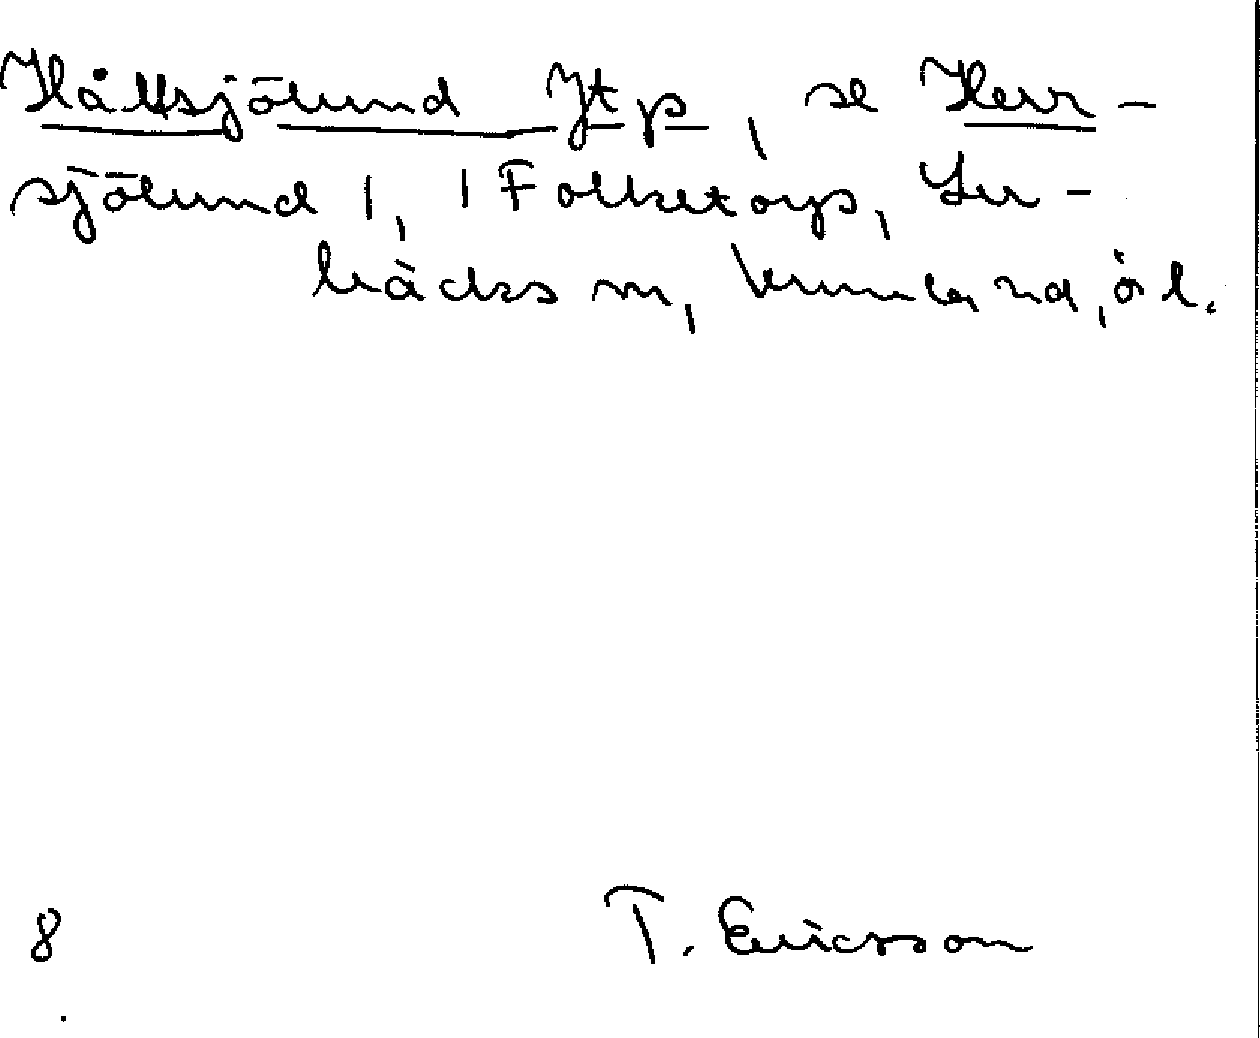 Hållsjölund Jtp, se Herr-
sjölund 1, 1 Folketorp, Ler-
bäcks sn, Kumla hd, ör l.
8 T. Ericsson